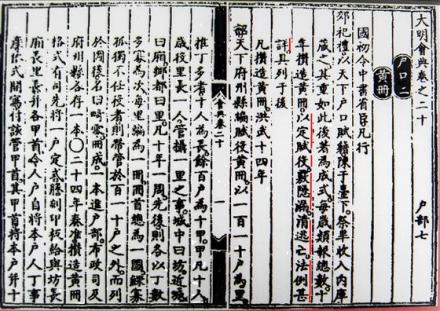 大明會典卷之二十 戶部七
戶口二
黃冊
國初令中書省臣凡行
郊祀禮以天下戶口賦籍陳于臺下祭畢收入內庫
藏之其重如此後著為成式每歲類報總數十
年攢造黃冊以定賦役覈隱漏清逃亡法例甚
詳具列于後
凡攢造黃冊洪武十四年
詔天下府州縣編賦役黃冊以一百一十戶為里
推丁多者十人為長餘百戶為十甲甲凡十人
歲役里長一人管攝一里之事城中曰坊近城
曰廂鄉都曰里凡十年一周先後則各以丁數
多寡為次每里編為一冊冊首總為一圖鰥寡
孤獨不任役者則帶管於百一十戶之外而列
於圖後名曰畸零冊成一本進戶部布政司及
府州縣各存一本○二十四年奏准攢造黃冊
格式有司先將一戶定式謄刻印板給與坊長
廂長里長并各甲首令人戶自將本戶人丁事
產依式開寫付該管甲首其甲首將本戶并十
會典卷二十
一